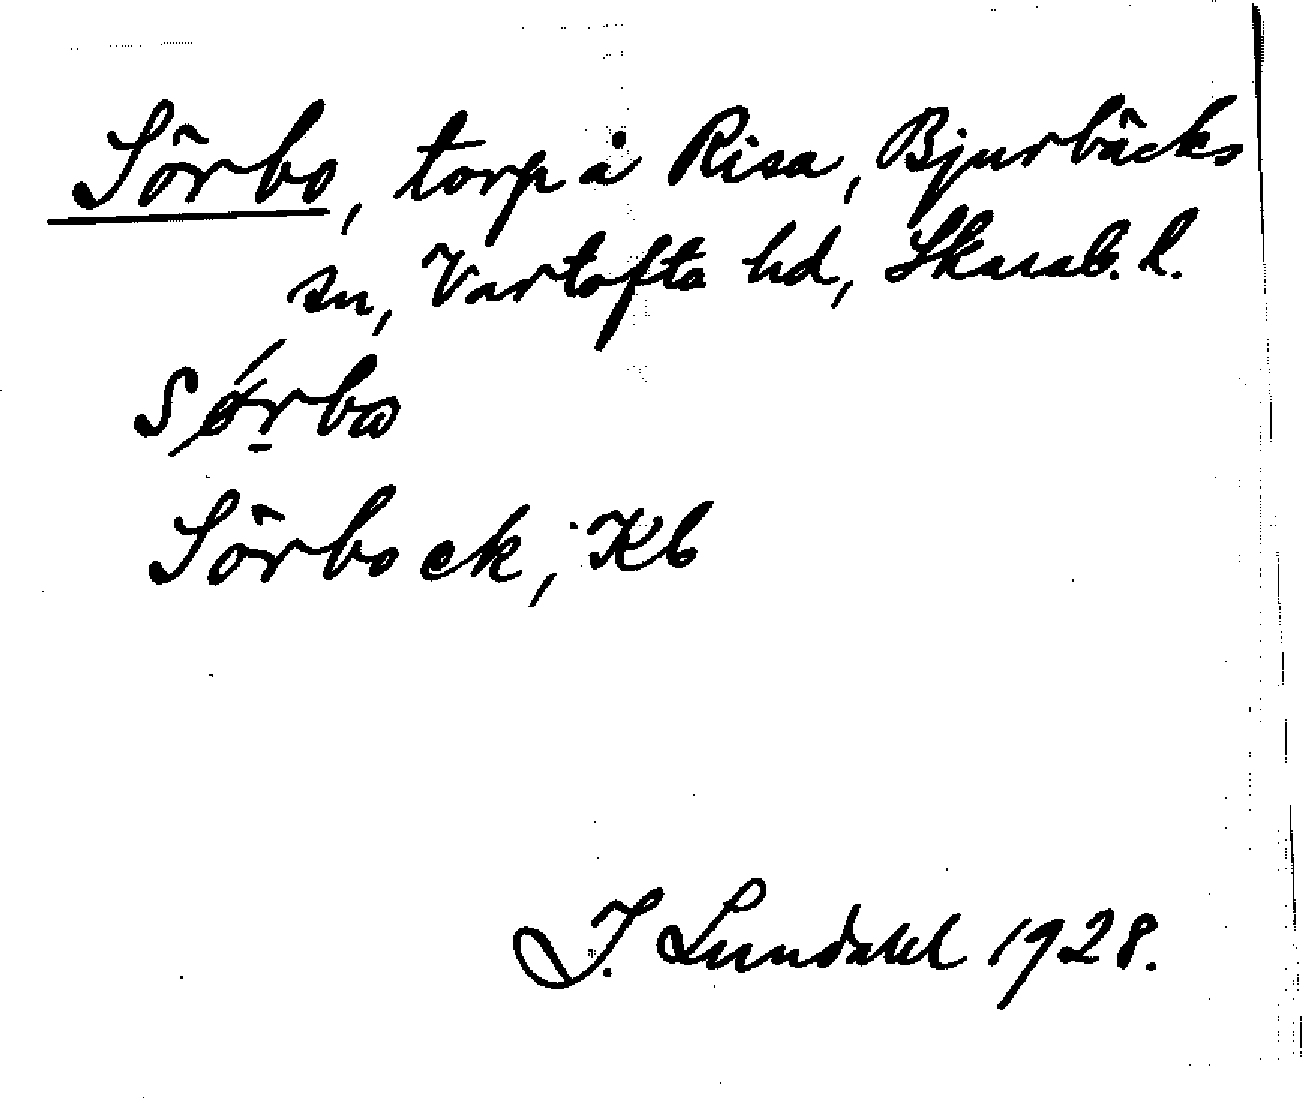 Sörbo, torp å Risa, Bjurbäcks
sn, Vartofta hd, Skarab. l.
Sörbo
Sörbo ek, Kb
I. Lundahl 1928.